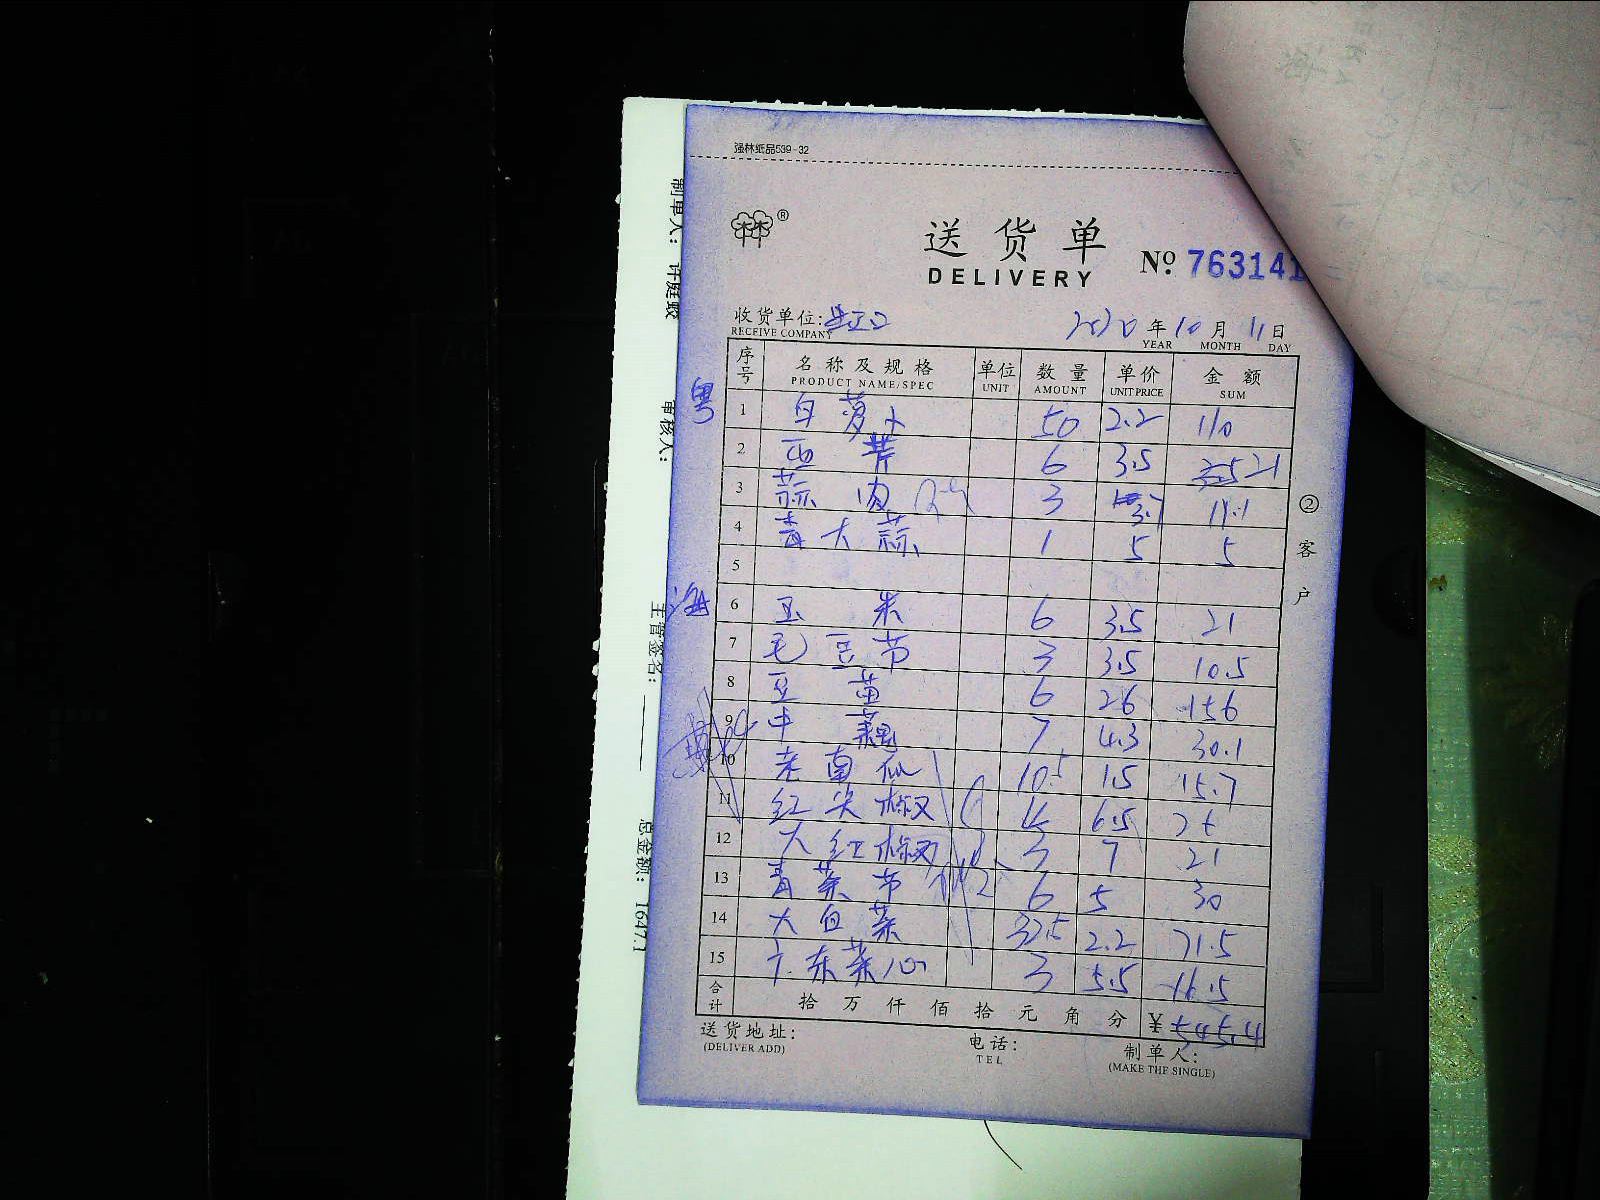 强林纸品539-32
送货单
DELIVERY
Nº 763141
收货单位:
RECEIVE COMPANY
2020 年 10 月 11 日
YEAR MONTH DAY
序号 名称及规格 单位 数量 单价 金额
PRODUCT NAME/SPEC UNIT AMOUNT UNIT PRICE SUM
粤
1 白萝卜 50 2.2 110
2 西芹 6 3.5 21
3 蒜肉 3 3.7 11.1
4 青大蒜 1 5 5
5
海
6 玉米 6 3.5 21
7 毛豆节 3 3.5 10.5
8 豆苗 6 26 156
9 中菇 7 4.3 30.1
10 老南瓜 10.5 1.5 15.7
11 红尖椒 4 6.5 26
12 大红椒 3 7 21
13 青菜节 6 5 30
14 大白菜 32.5 2.2 71.5
15 广东菜心 3 5.5 16.5
合计 拾 万 仟 佰 拾 元 角 分 ¥ 545.4
送货地址:
(DELIVER ADD)
电话:
TEL
制单人:
(MAKE THE SINGLE)
②客户
制单人: 许庭
审核人:
主管签名:
总金额: 1647.1